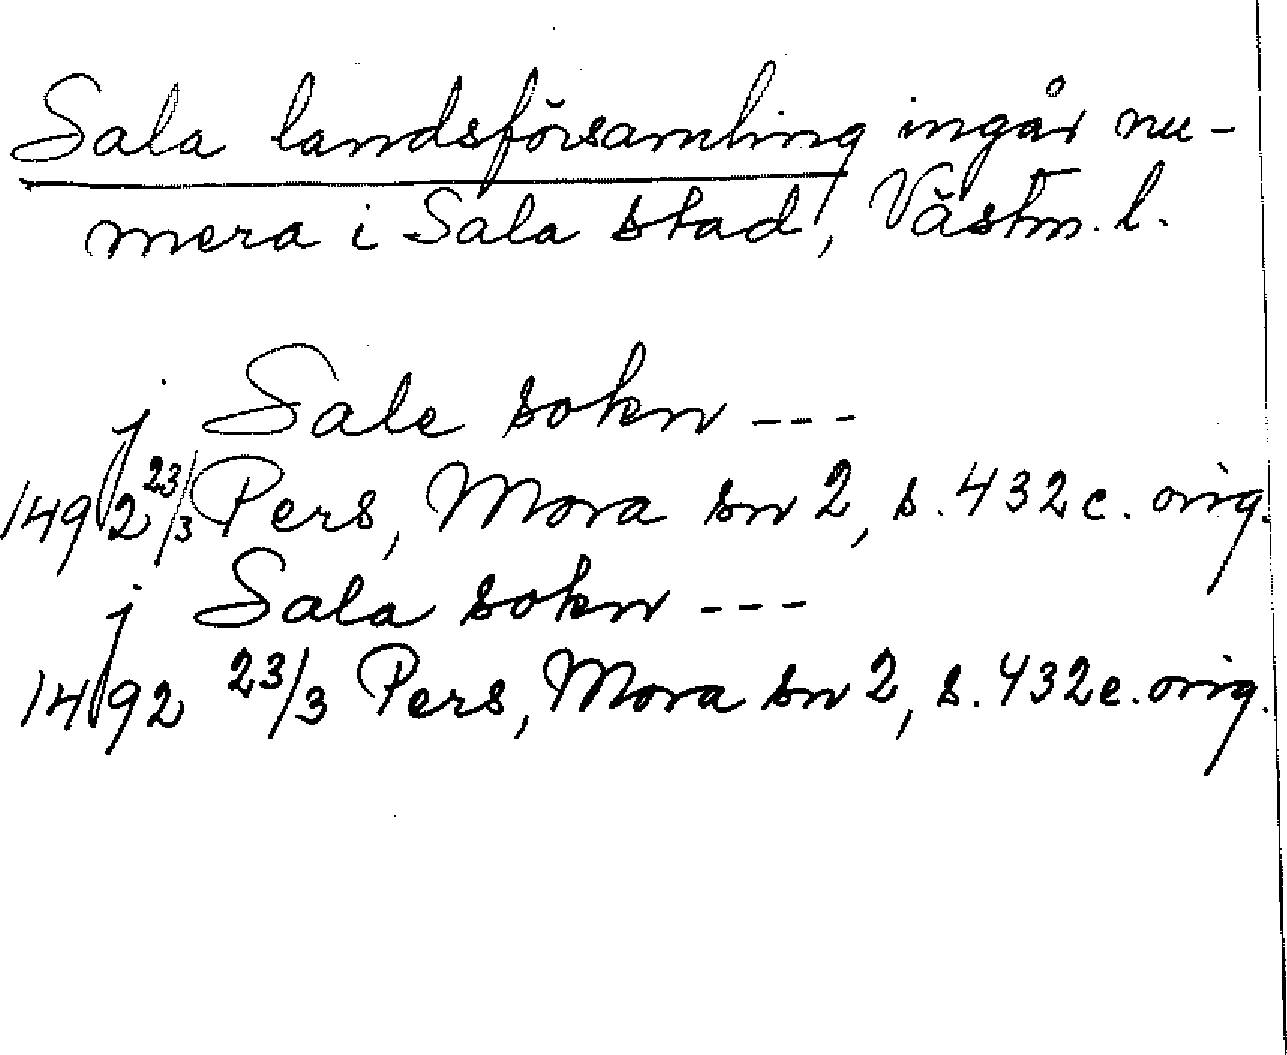 Sala landsförsamling ingår nu-
mera i Sala stad, Västm. l.
j Sale sokn ---
1492 23/3 Pers, Mora sn 2, s. 432 c. orig.
j Sala sokn ---
1492 23/3 Pers, Mora sn 2, s. 432 c. orig.